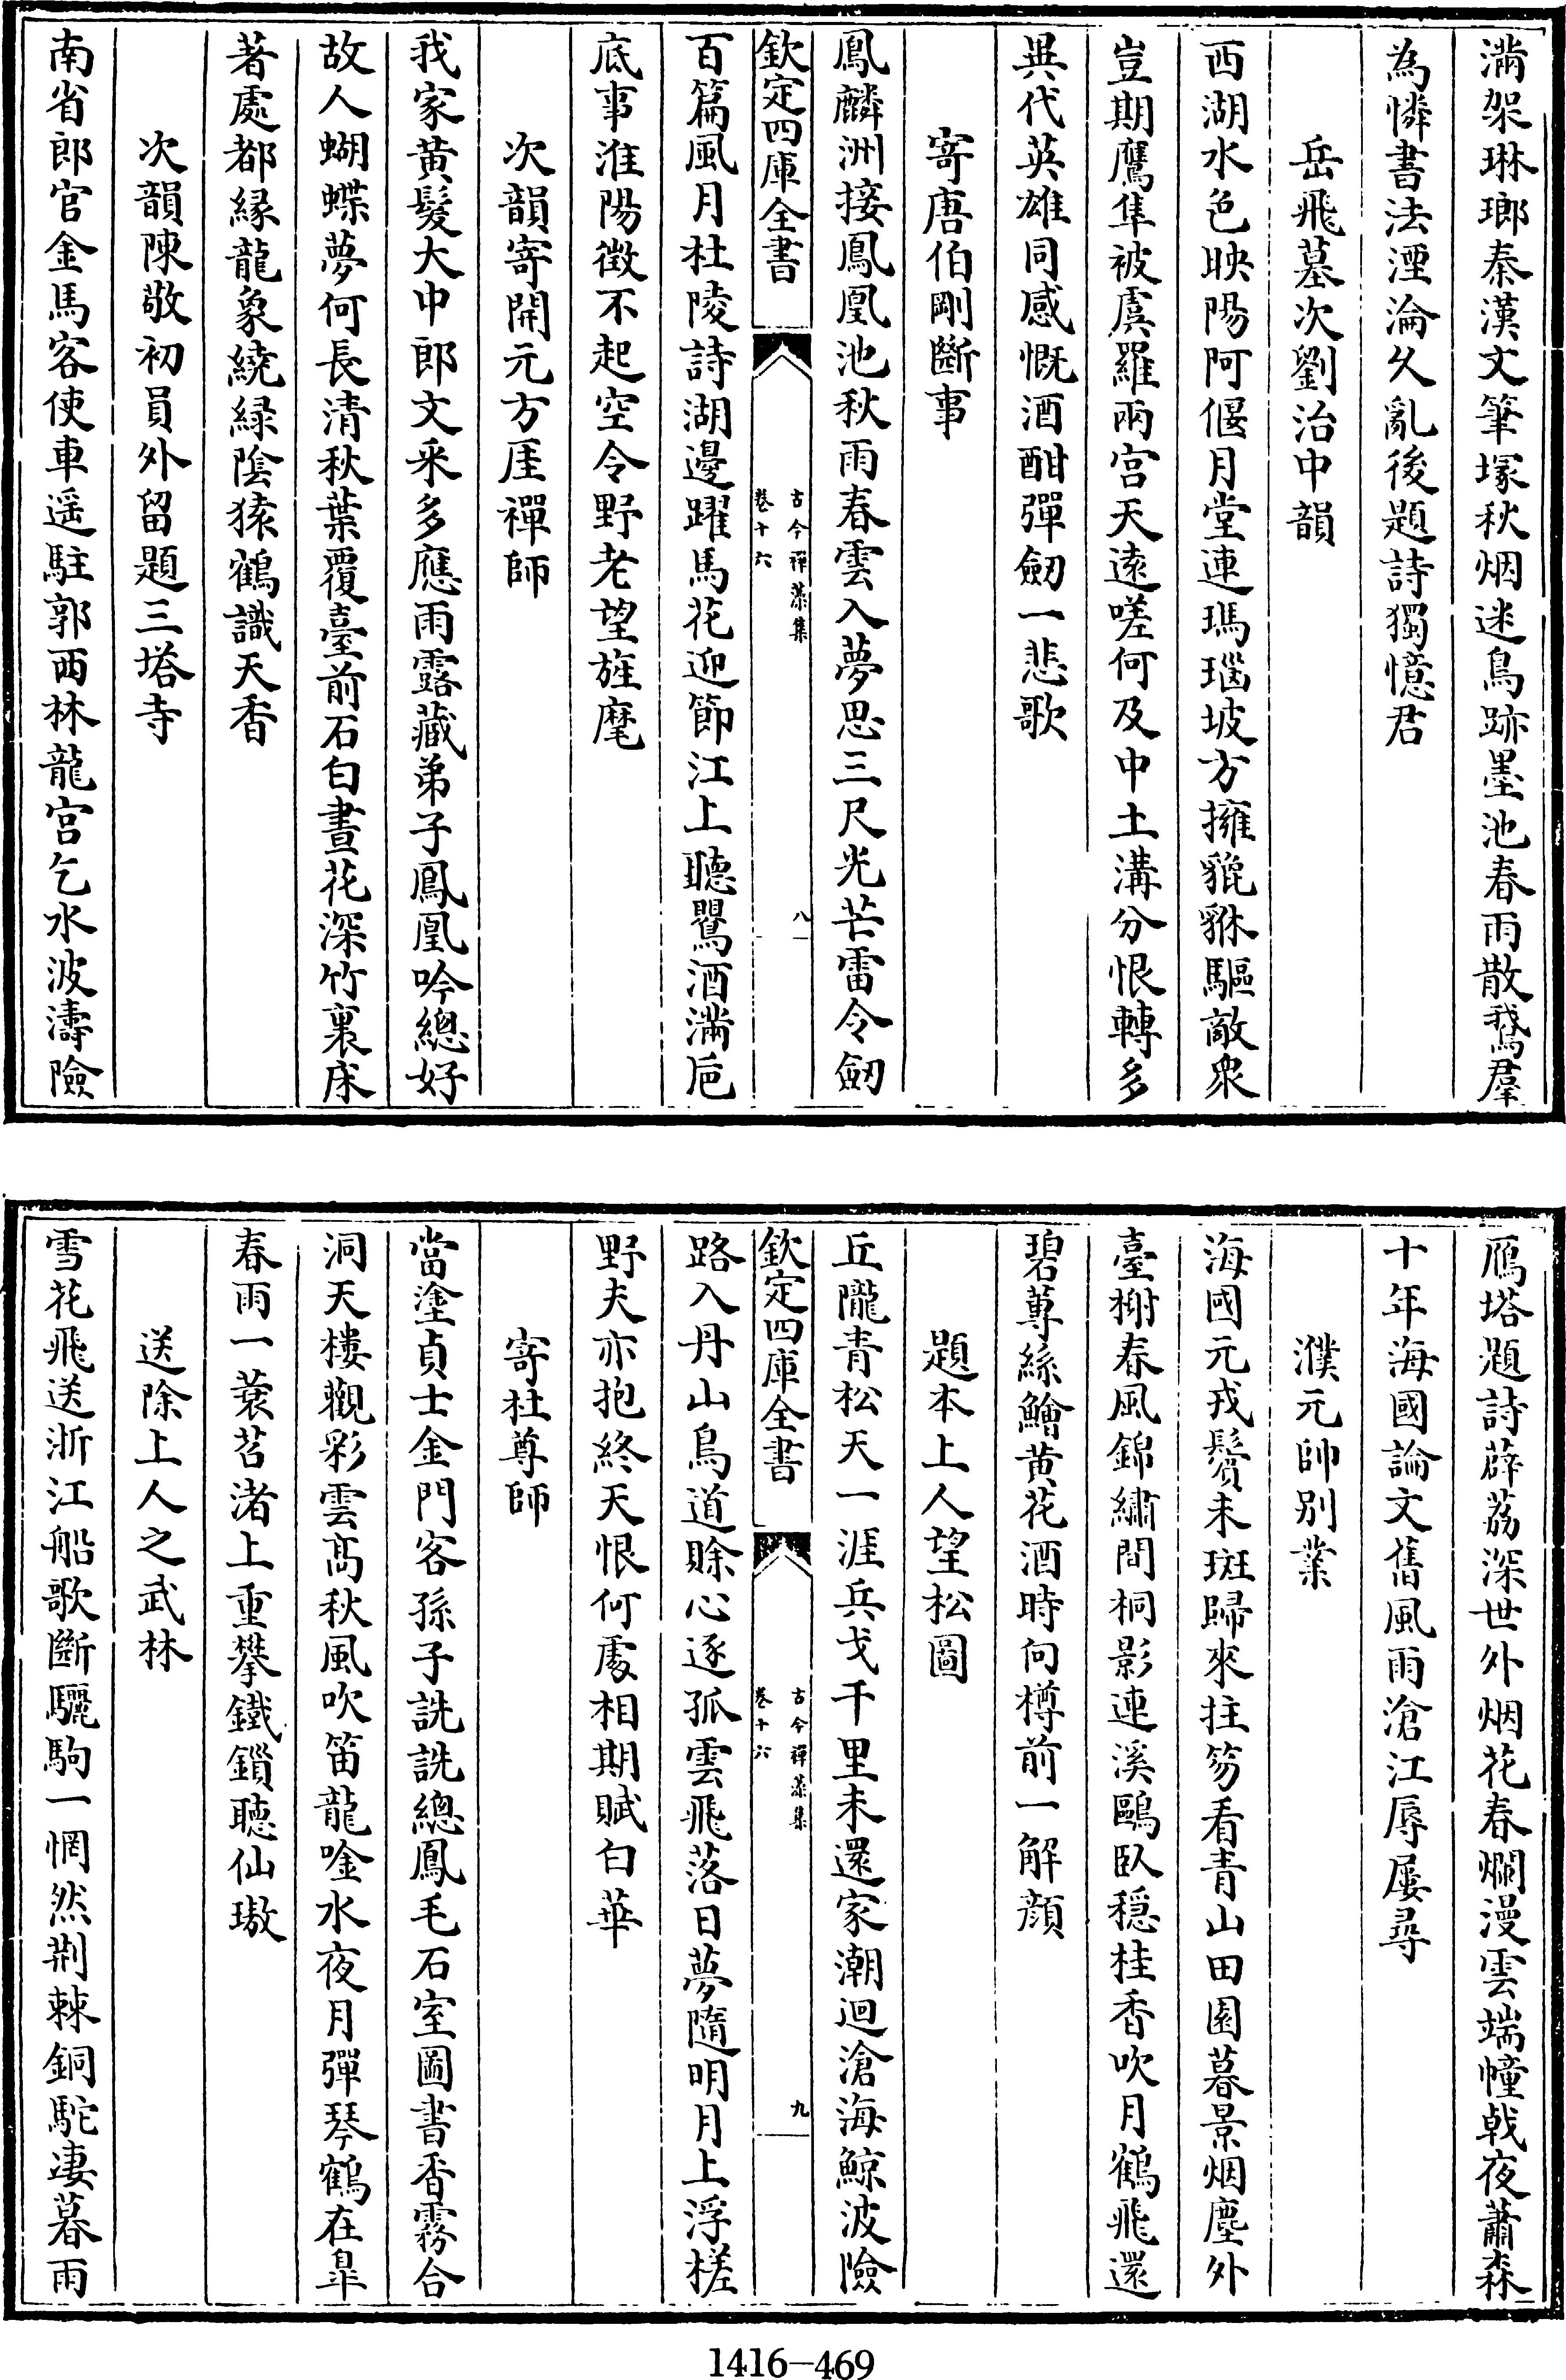 滿架琳瑯秦漢文筆塚秋烟迷鳥跡墨池春雨散鵞羣
為憐書法湮淪久亂後題詩獨憶君
岳飛墓次劉治中韻
西湖水色映陽阿偃月堂連瑪瑙坡方擁貔貅驅敵衆
豈期鷹隼被虞羅兩宫天逺嗟何及中土溝分恨轉多
異代英雄同感慨酒酣彈劒一悲歌
寄唐伯剛斷事
鳳麟洲接鳳凰池秋雨春雲入夢思三尺光芒雷令劒
欽定四庫全書
古今禪藻集
卷十六
八
百篇風月杜陵詩湖邊躍馬花迎節江上聽鸎酒滿巵
底事淮陽徴不起空令野老望旌麾
次韻寄開元方厓禪師
我家黄髪大中郎文采多應雨露藏弟子鳳凰吟總好
故人蝴蝶夢何長清秋葉覆臺前石白晝花深竹裏床
著處都縁龍象繞緑陰猿鶴識天香
次韻陳敬初員外留題三塔寺
南省郎官金馬客使車遥駐郭西林龍宫乞水波濤險
鴈塔題詩薜荔深世外烟花春爛漫雲端幢㦸夜蕭森
十年海國論文舊風雨滄江辱屢尋
濮元帥别業
海國元戎鬢未斑歸來拄笏看青山田園暮景烟塵外
臺榭春風錦繡間桐影連溪鷗臥穩桂香吹月鶴飛還
碧蓴絲鱠黄花酒時向樽前一解顔
題本上人望松圖
丘隴青松天一涯兵戈千里未還家潮迴滄海鯨波險
欽定四庫全書
古今禪藻集
卷十六
九
路入丹山鳥道賖心逐孤雲飛落日夢隨明月上浮槎
野夫亦抱終天恨何處相期賦白華
寄杜尊師
當塗貞士金門客孫子詵詵總鳳毛石室圖書香霧合
洞天樓觀彩雲髙秋風吹笛龍唫水夜月彈琴鶴在臯
春雨一蓑苕渚上重攀鐵鎖聽仙璈
送除上人之武林
雪花飛送浙江船歌斷驪駒一惘然荆棘銅駝凄暮雨
1416-469